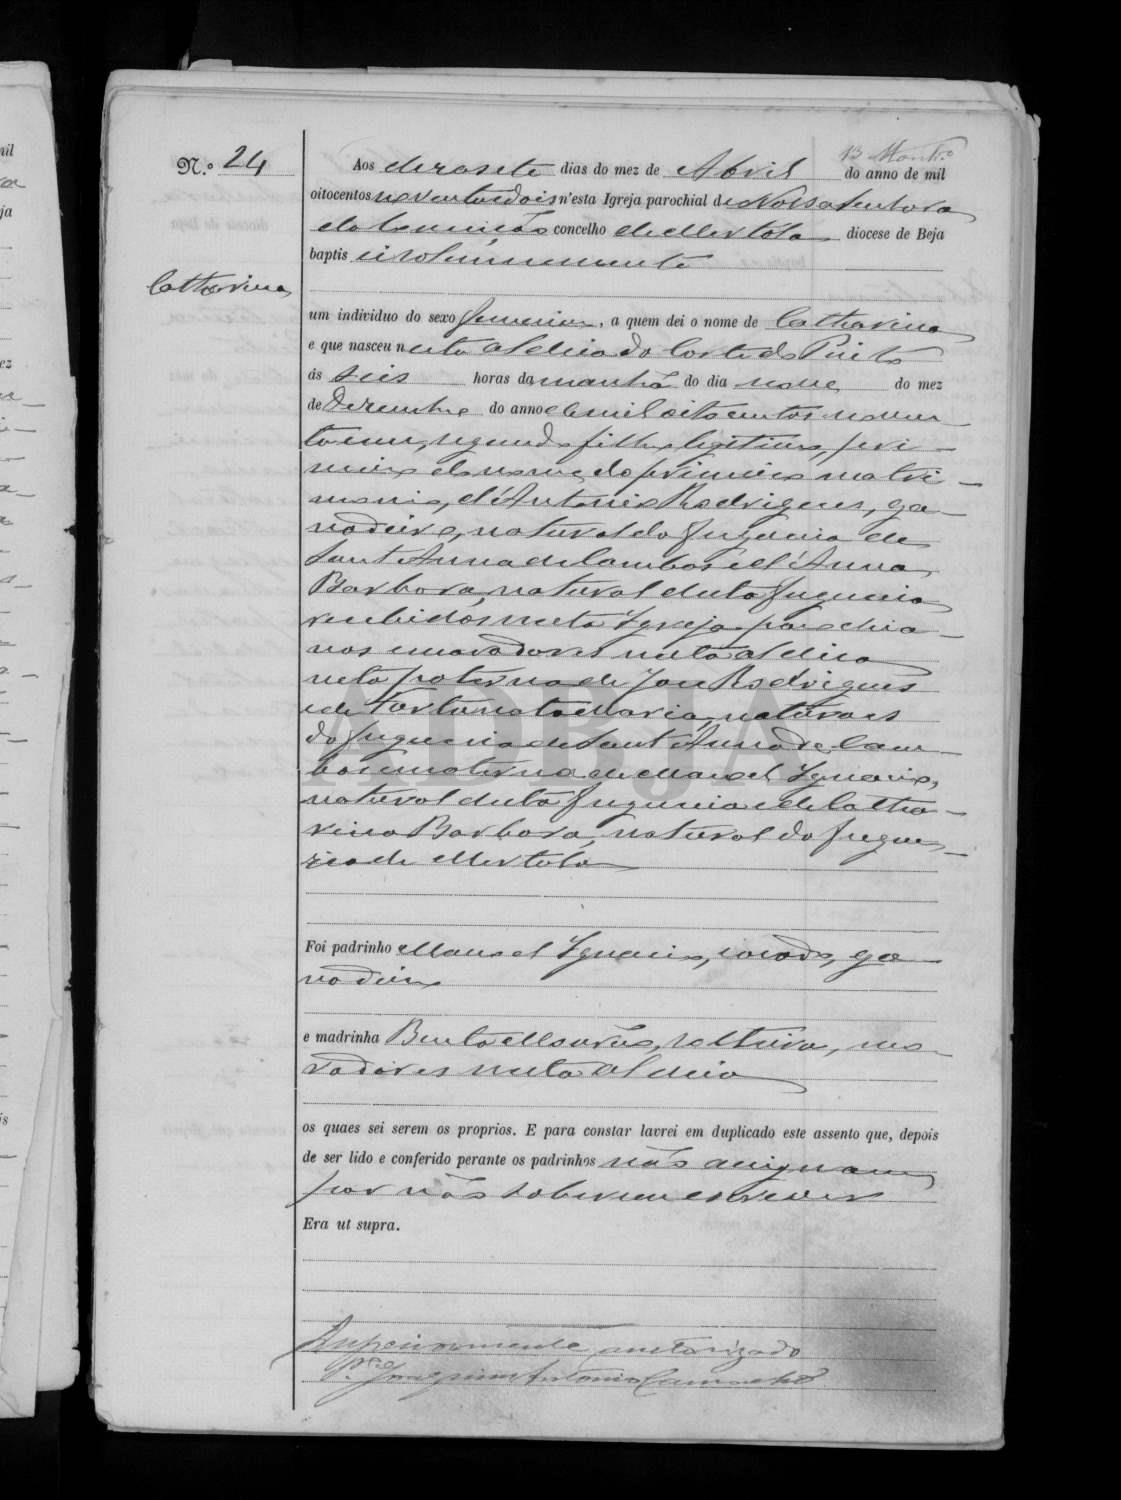 N.º 24
Aos dezasete dias do mez de Abril do anno de mil
oitocentos noventa e dois n'esta Igreja parochial de Nossa Senhora
da Conceição concelho de Mertola diocese de Beja
baptisei solemnemente
Catharina
um individuo do sexo femenino, a quem dei o nome de Catharina
e que nasceu nesta aldeia da Corte do Pinto
ás seis horas da manhã do dia nove do mez
de Dezembro do anno de mil oitocentos noven
ta e um, segunda filha legitima, pri
meira do nome, do primeiro matri
monio, d'Antonio Rodrigues, ga
nadeiro, natural da freguesia de
Sant'Anna de Cambas e d'Anna
Barbara, natural desta freguesia
recebidos nesta Igreja parochia
nos e moradores nesta aldeia
neta paterna de José Rodrigues
e de Fortunata Maria, naturaes
da freguesia de Sant'Anna de Cam
bas e materna de Manoel Ignacio,
natural desta freguesia e de Catha
rina Barbara, natural da fregue
sia de Mertola
Foi padrinho Manoel Ignacio, viuvo, ga
nadeiro
e madrinha Benta solteira, mo
radores nesta aldeia
os quaes sei serem os proprios. E para constar lavrei em duplicado este assento que, depois
de ser lido e conferido perante os padrinhos não assignam
por não saberem escrever
Era ut supra.
Superiormente auctorizado
P.e Joaquim Antonio Camacho
ADBJA